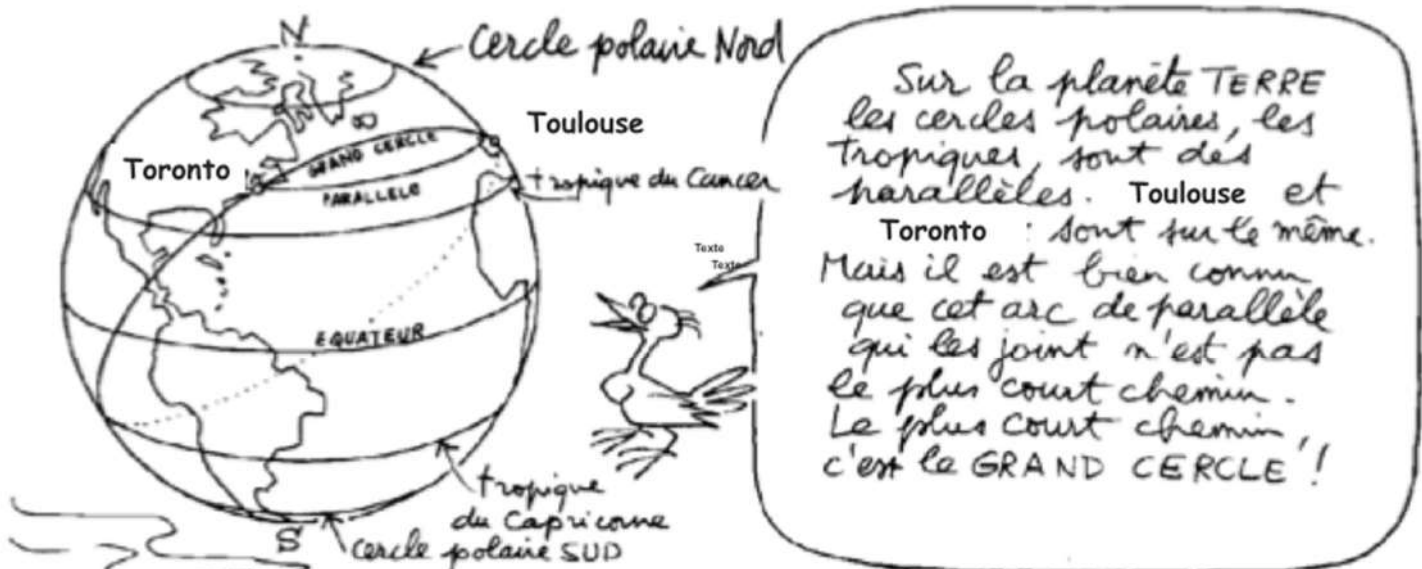 N
Cercle polaire Nord
Toulouse
Toronto
GRAND CERCLE
PARALLELE
tropique du Cancer
EQUATEUR
tropique
du Capricorne
S
cercle polaire SUD
Texte
Texte
Sur la planète TERRE
les cercles polaires, les
tropiques, sont des
parallèles. Toulouse et
Toronto : sont sur le même.
Mais il est bien connu
que cet arc de parallèle
qui les joint n'est pas
le plus court chemin.
Le plus court chemin,
c'est le GRAND CERCLE !